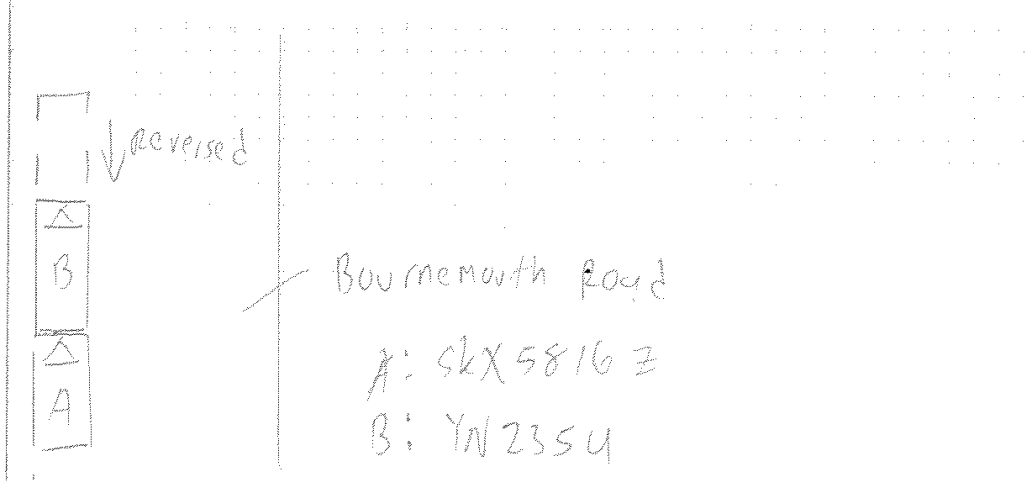 Reversed
B
Bournemouth Road
A
A: SKX5816Z
B: YN2354